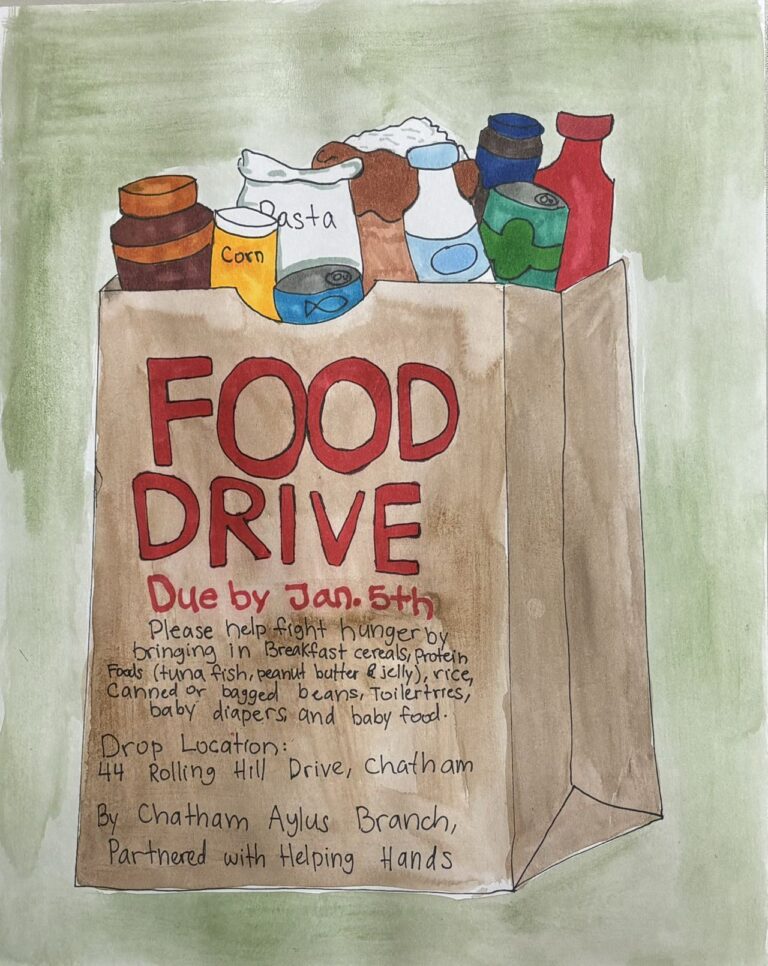 Pasta
Corn
FOOD
DRIVE
Due by Jan. 5th
Please help fight hunger by
bringing in Breakfast cereals, Protein
Foods (tuna fish, peanut butter & jelly), rice,
Canned or bagged beans, Toilertries,
baby diapers, and baby food.
Drop Location:
44 Rolling Hill Drive, Chatham
By Chatham Aylus Branch,
Partnered with Helping Hands